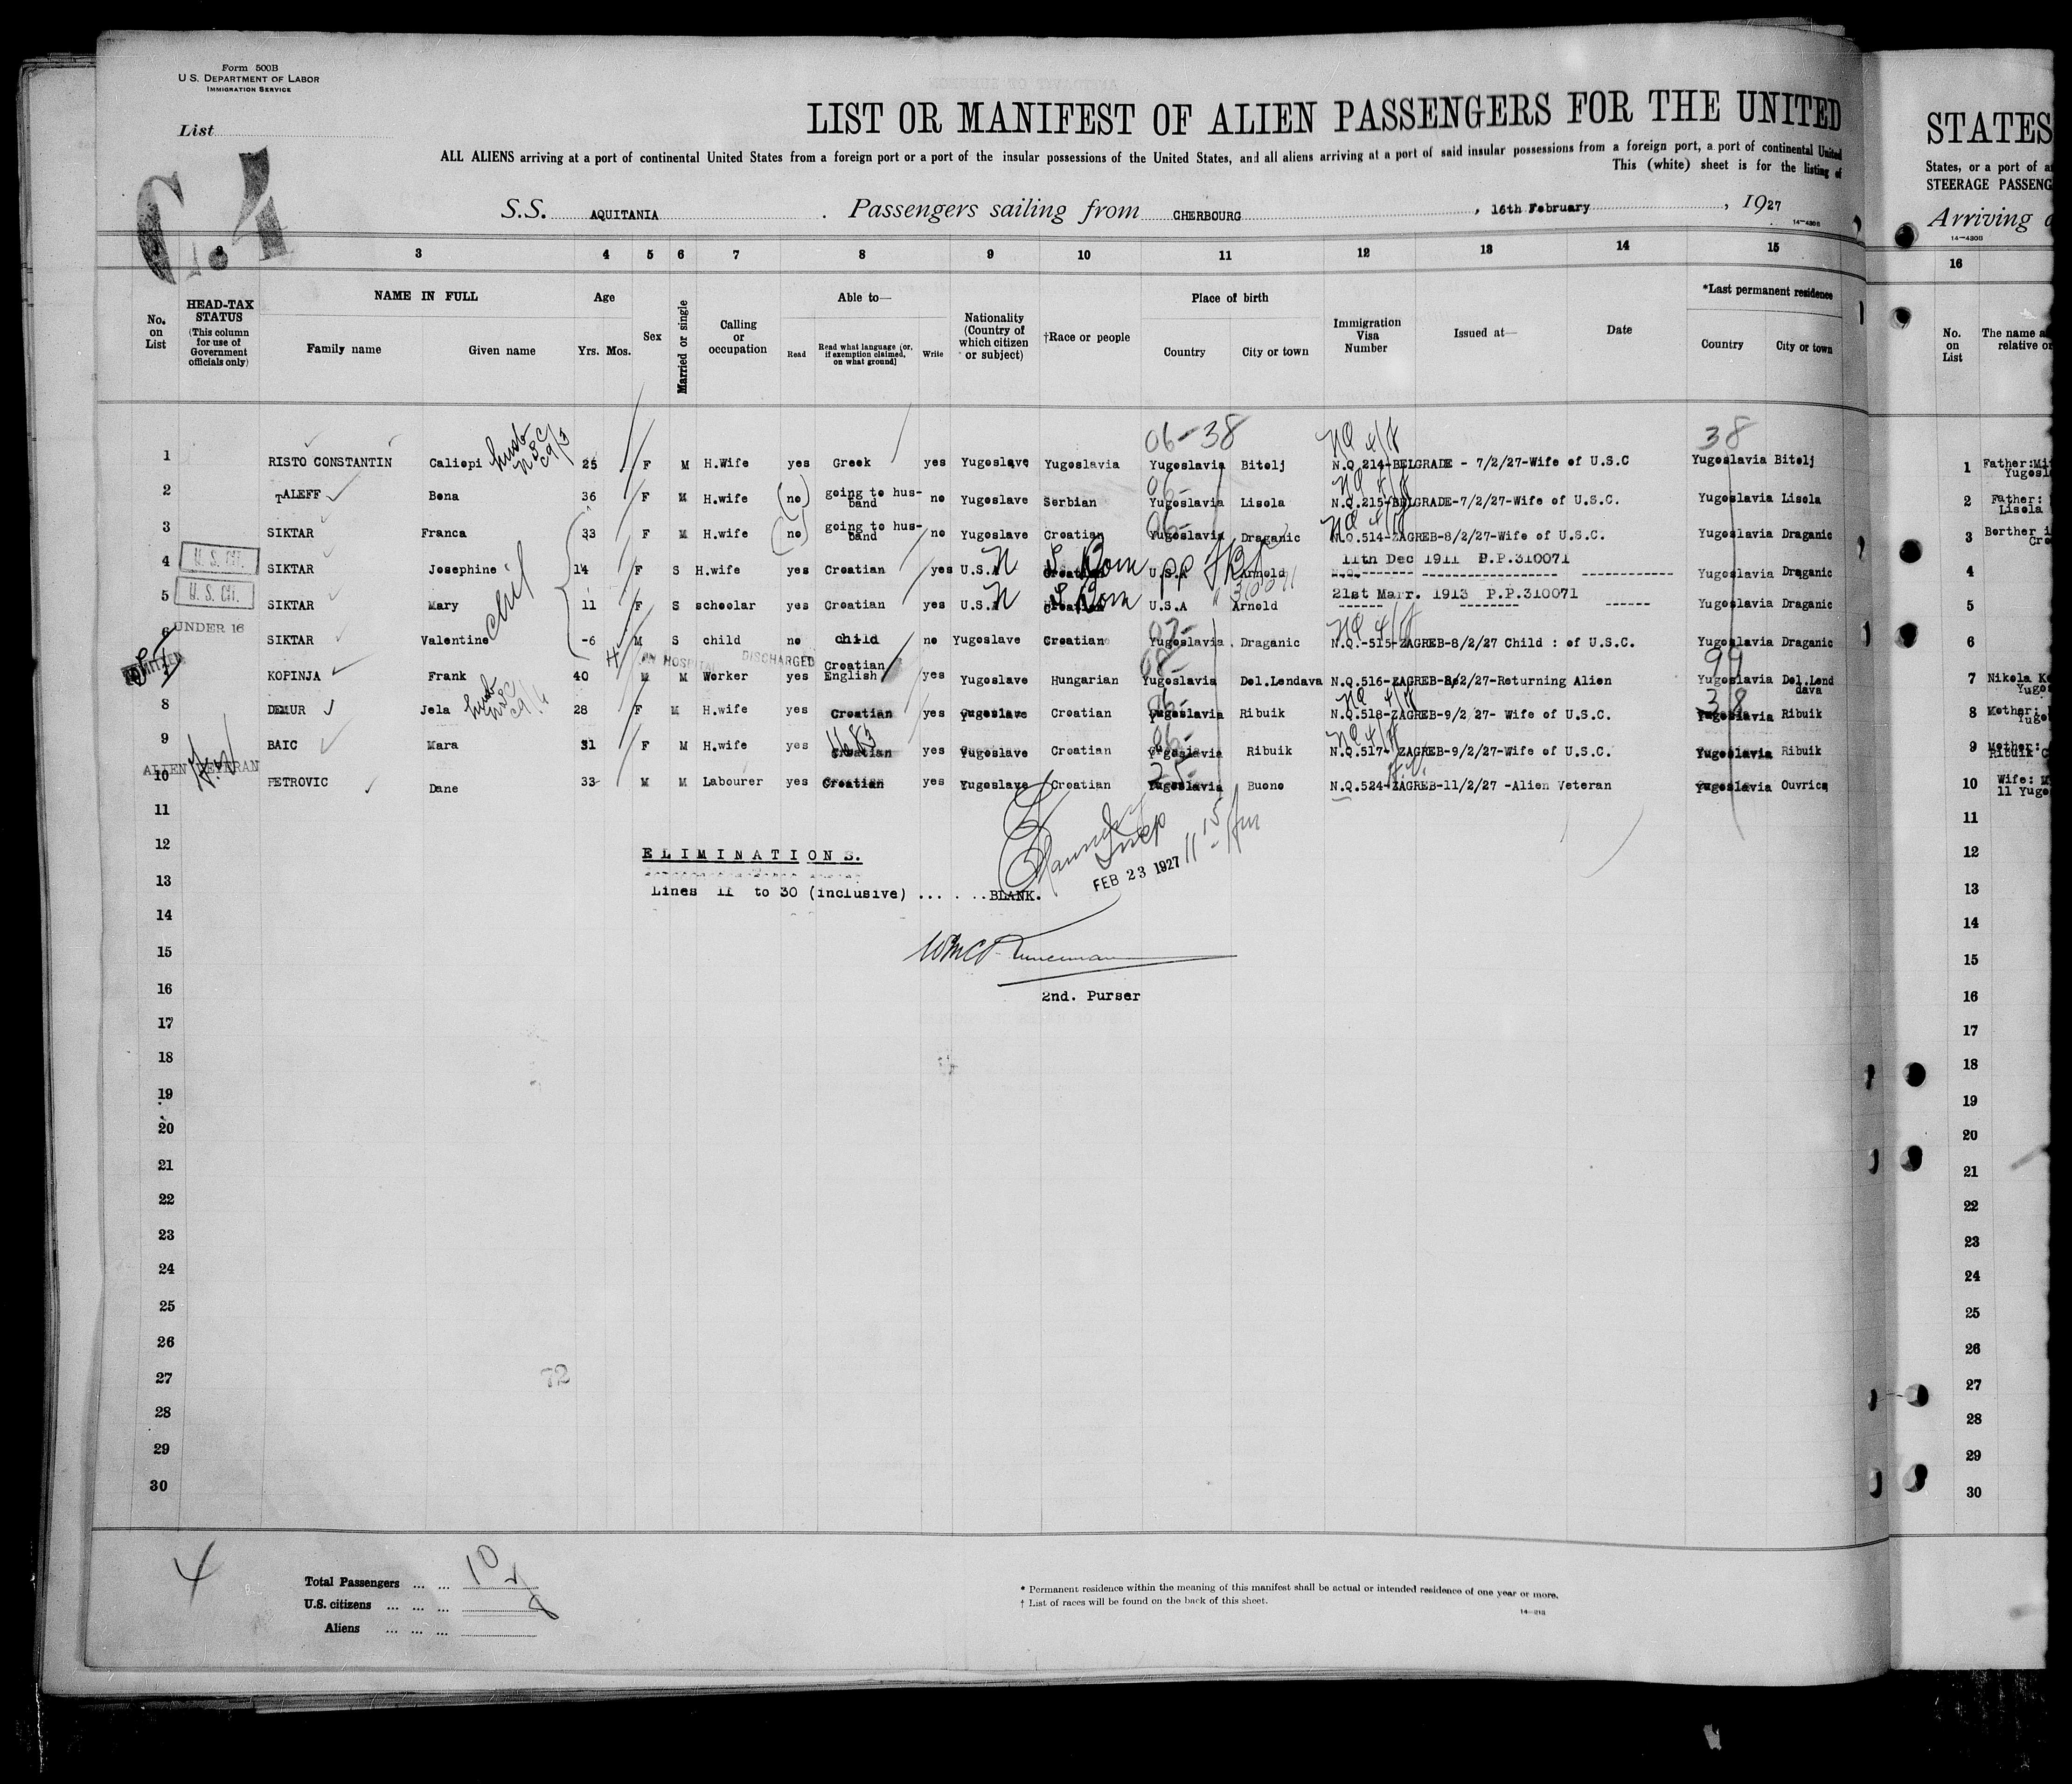 Form 500B
U.S. DEPARTMENT OF LABOR
IMMIGRATION SERVICE
List
LIST OR MANIFEST OF ALIEN PASSENGERS FOR THE UNITED
STATES
ALL ALIENS arriving at a port of continental United States from a foreign port or a port of the insular possessions of the United States, and all aliens arriving at a port of said insular possessions from a foreign port, a port of continental United
States, or a port of
This (white) sheet is for the listing of
STEERAGE PASSENG
S.S. AQUITANIA. Passengers sailing from CHERBOURG, 16th February, 1927
Arriving
14-4306
14-4306
2 3 4 5 6 7 8 9 10 11 12 13 14 15 16
No. on List
HEAD-TAX STATUS (This column for use of Government officials only)
NAME IN FULL
Family name Given name
Age
Yrs. Mos.
Sex
Married or single
Calling or occupation
Able to—
Read
Read what language [or, if exemption claimed, on what ground]
Write
Nationality (Country of which citizen or subject)
†Race or people
Place of birth
Country City or town
Immigration Visa Number
Issued at—
Date
*Last permanent residence
Country City or town
No. on List
The name a
relative or
06-38 NQ 4/f 38
1 RISTO CONSTANTIN Caliopi husb 25 F M H.Wife yes Greek yes Yugoslave Yugoslavia Yugoslavia Bitolj N.Q.214-BELGRADE - 7/2/27-Wife of U.S.C Yugoslavia Bitolj 1 Father:
2 TALEFF Bona 36 F M H.wife (no) going to husband no Yugoslave Serbian Yugoslavia Lisola N.Q.215-BELGRADE-7/2/27-Wife of U.S.C. Yugoslavia Lisola 2 Father: Lisola
3 SIKTAR Franca 33 F M H.wife (no) going to husband no Yugoslave Croatian Yugoslavia Draganic N.Q.514-ZAGREB-8/2/27-Wife of U.S.C. Yugoslavia Draganic 3 Borther
4 U.S. CIT. SIKTAR Josephine 14 F S H.wife yes Croatian yes U.S.A Croatian Born U.S.A Arnold 11th Dec 1911 P.P.310071 Yugoslavia Draganic 4
5 U.S. CIT. SIKTAR Mary 11 F S schoolar yes Croatian yes U.S.A Croatian Born U.S.A Arnold 21st Marr. 1913 P.P.310071 Yugoslavia Draganic 5
6 UNDER 16 SIKTAR Valentine -6 M S child no child no Yugoslave Croatian Yugoslavia Draganic N.Q.-515-ZAGREB-8/2/27 Child : of U.S.C. Yugoslavia Draganic 6
IN HOSPITAL DISCHARGED
KOPINJA Frank 40 M M Worker yes Croatian English yes Yugoslave Hungarian Yugoslavia Dol.Lendava N.Q.516-ZAGREB-8/2/27-Returning Alien Yugoslavia Dol.Lendava 7 Nikola
8 DEMUR Jela husb 28 F M H.wife yes Croatian yes Yugoslave Croatian Yugoslavia Ribuik N.Q.518-ZAGREB-9/2 27- Wife of U.S.C. Yugoslavia Ribuik 8 Mother:
9 BAIC Mara 31 F M H.wife yes Croatian yes Yugoslave Croatian Yugoslavia Ribuik N.Q.517- ZAGREB-9/2/27-Wife of U.S.C. Yugoslavia Ribuik 9 Mother: Ribuik
ALIEN VETERAN
10 PETROVIC Dane 33 M M Labourer yes Croatian yes Yugoslave Croatian Yugoslavia Buono N.Q.524-ZAGREB-11/2/27 -Alien Veteran Yugoslavia Ouvrica 10 Wife:
11 11
12 ELIMINATIONS. 12
FEB 23 1927
13 Lines 11 to 30 (inclusive) ... . ..BLANK. 13
14 14
15 15
16 2nd. Purser 16
17 17
18 18
19 19
20 20
21 21
22 22
23 23
24 24
25 25
26 26
27 72 27
28 28
29 29
30 30
4
Total Passengers ... ... 10
U.S. citizens ... ... ...
Aliens ... ... ...
* Permanent residence within the meaning of this manifest shall be actual or intended residence of one year or more.
† List of races will be found on the back of this sheet.
14-213